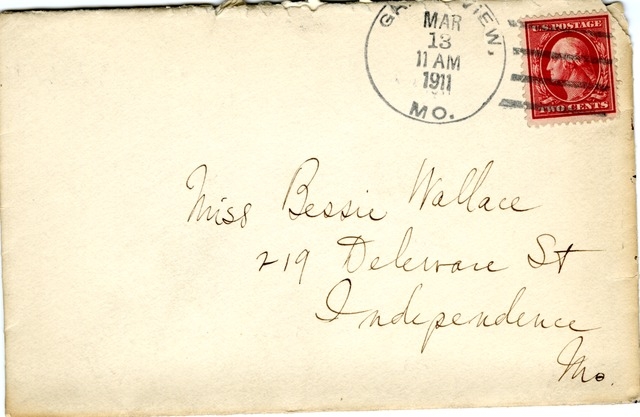 MAR
13
11 AM
1911
MO.
U.S. POSTAGE
TWO CENTS
Miss Bessie Wallace
219 Deleware St
Independence
Mo.